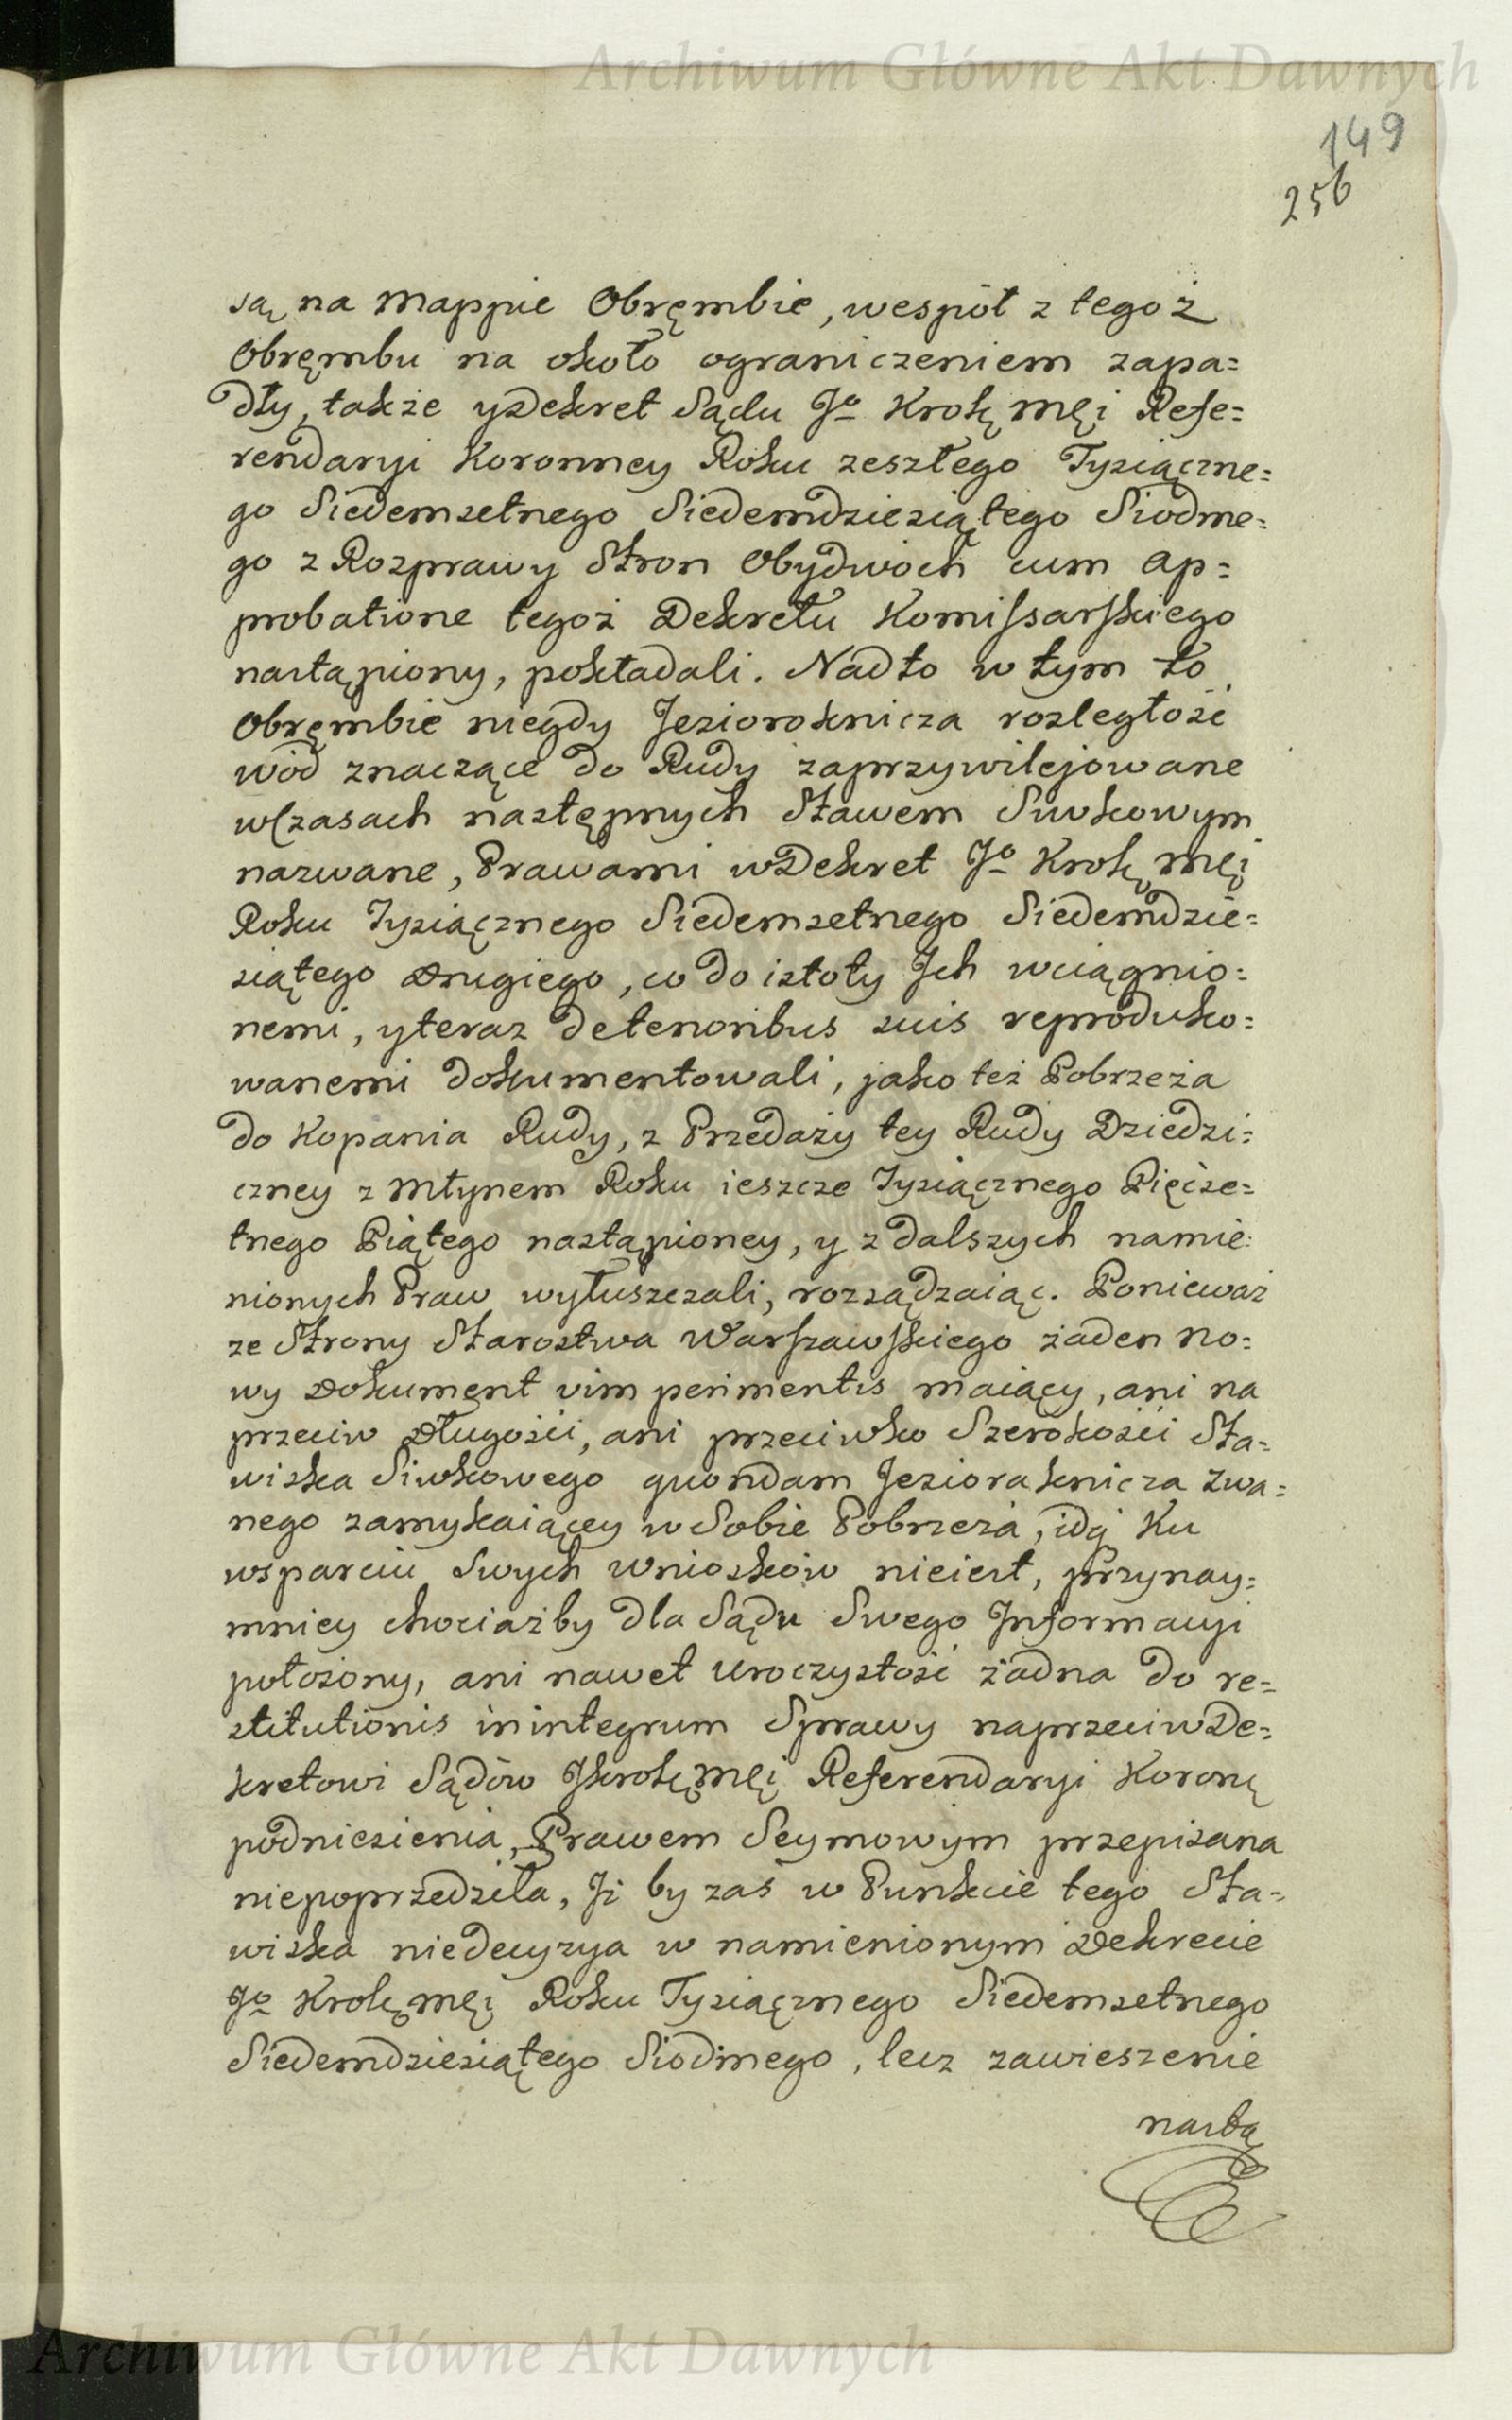 Archiwum Główne Akt Dawnych
149
256
są na Mappie Obrębmbie, wespół z tegoż
Obrębmbu na około ograniczeniem zapa=
dły, także y Dekret Sądu Jo Krolę Męi Refe=
rendaryi Koronney Roku zeszłego Tysiączne=
go Siedemsetnego Siedemdziesiątego Siodme=
go z Rozprawy Stron Obydwóch cum ap=
probatione tegoż Dekretu Komissarskiego
nastąpiony, pokładali. Nadto w tym to
Obrębmbie niegdy Jezioroknicza rozległość
wód znaczące do Rudy zaprzywilejowane
w Czasach następnych Stawem Siwkowym
nazwane, Prawami w Dekret Jo Krolę Męi
Roku Tysiącznego Siedemsetnego Siedemdzie=
siątego Drugiego, co do istoty Jch wciągnio=
nemi, y teraz de tenoribus suis reproduko=
wanemi dokumentowali, jako też Pobrzeża
do Kopania Rudy, z Przedaży tey Rudy Dziedzi=
czney z Młynem Roku ieszcze Tysiącznego Pięćse=
tnego Piątego nastąpioney, y z dalszych namie=
nionych Praw wyłuszczali, rozsądzaiąc. Ponieważ
ze Strony Starostwa Warszawskiego żaden no=
wy Dokument vim perimentis maiący, ani na
przeciw Długości, ani przeciwko Szerokości Sta=
wiska Siwkowego quondam Jeziora knicza zwa=
nego zamykaiącey w Sobie Pobrzeża, idą Ku
wsparciu Swych Wniosków nieiest, przynay=
mniey chociażby dla Sądu Swego Jnformacyi
położony, ani nawet Uroczystość żadna do re=
stitutionis in integrum Sprawy naprzeciw De=
kretowi Sądów JKrolę Męi Referendaryi Koronę
podniesienia, Prawem Seymowym przepisana
niepoprzedziła, Jż by zaś w Punkcie tego Sta=
wiska niedecyzya w namienionym Dekrecie
Jo Krolę Męi Roku Tysiącznego Siedemsetnego
Siedemdziesiątego Siodmego, lecz zawieszenie
nastą
Archiwum Główne Akt Dawnych